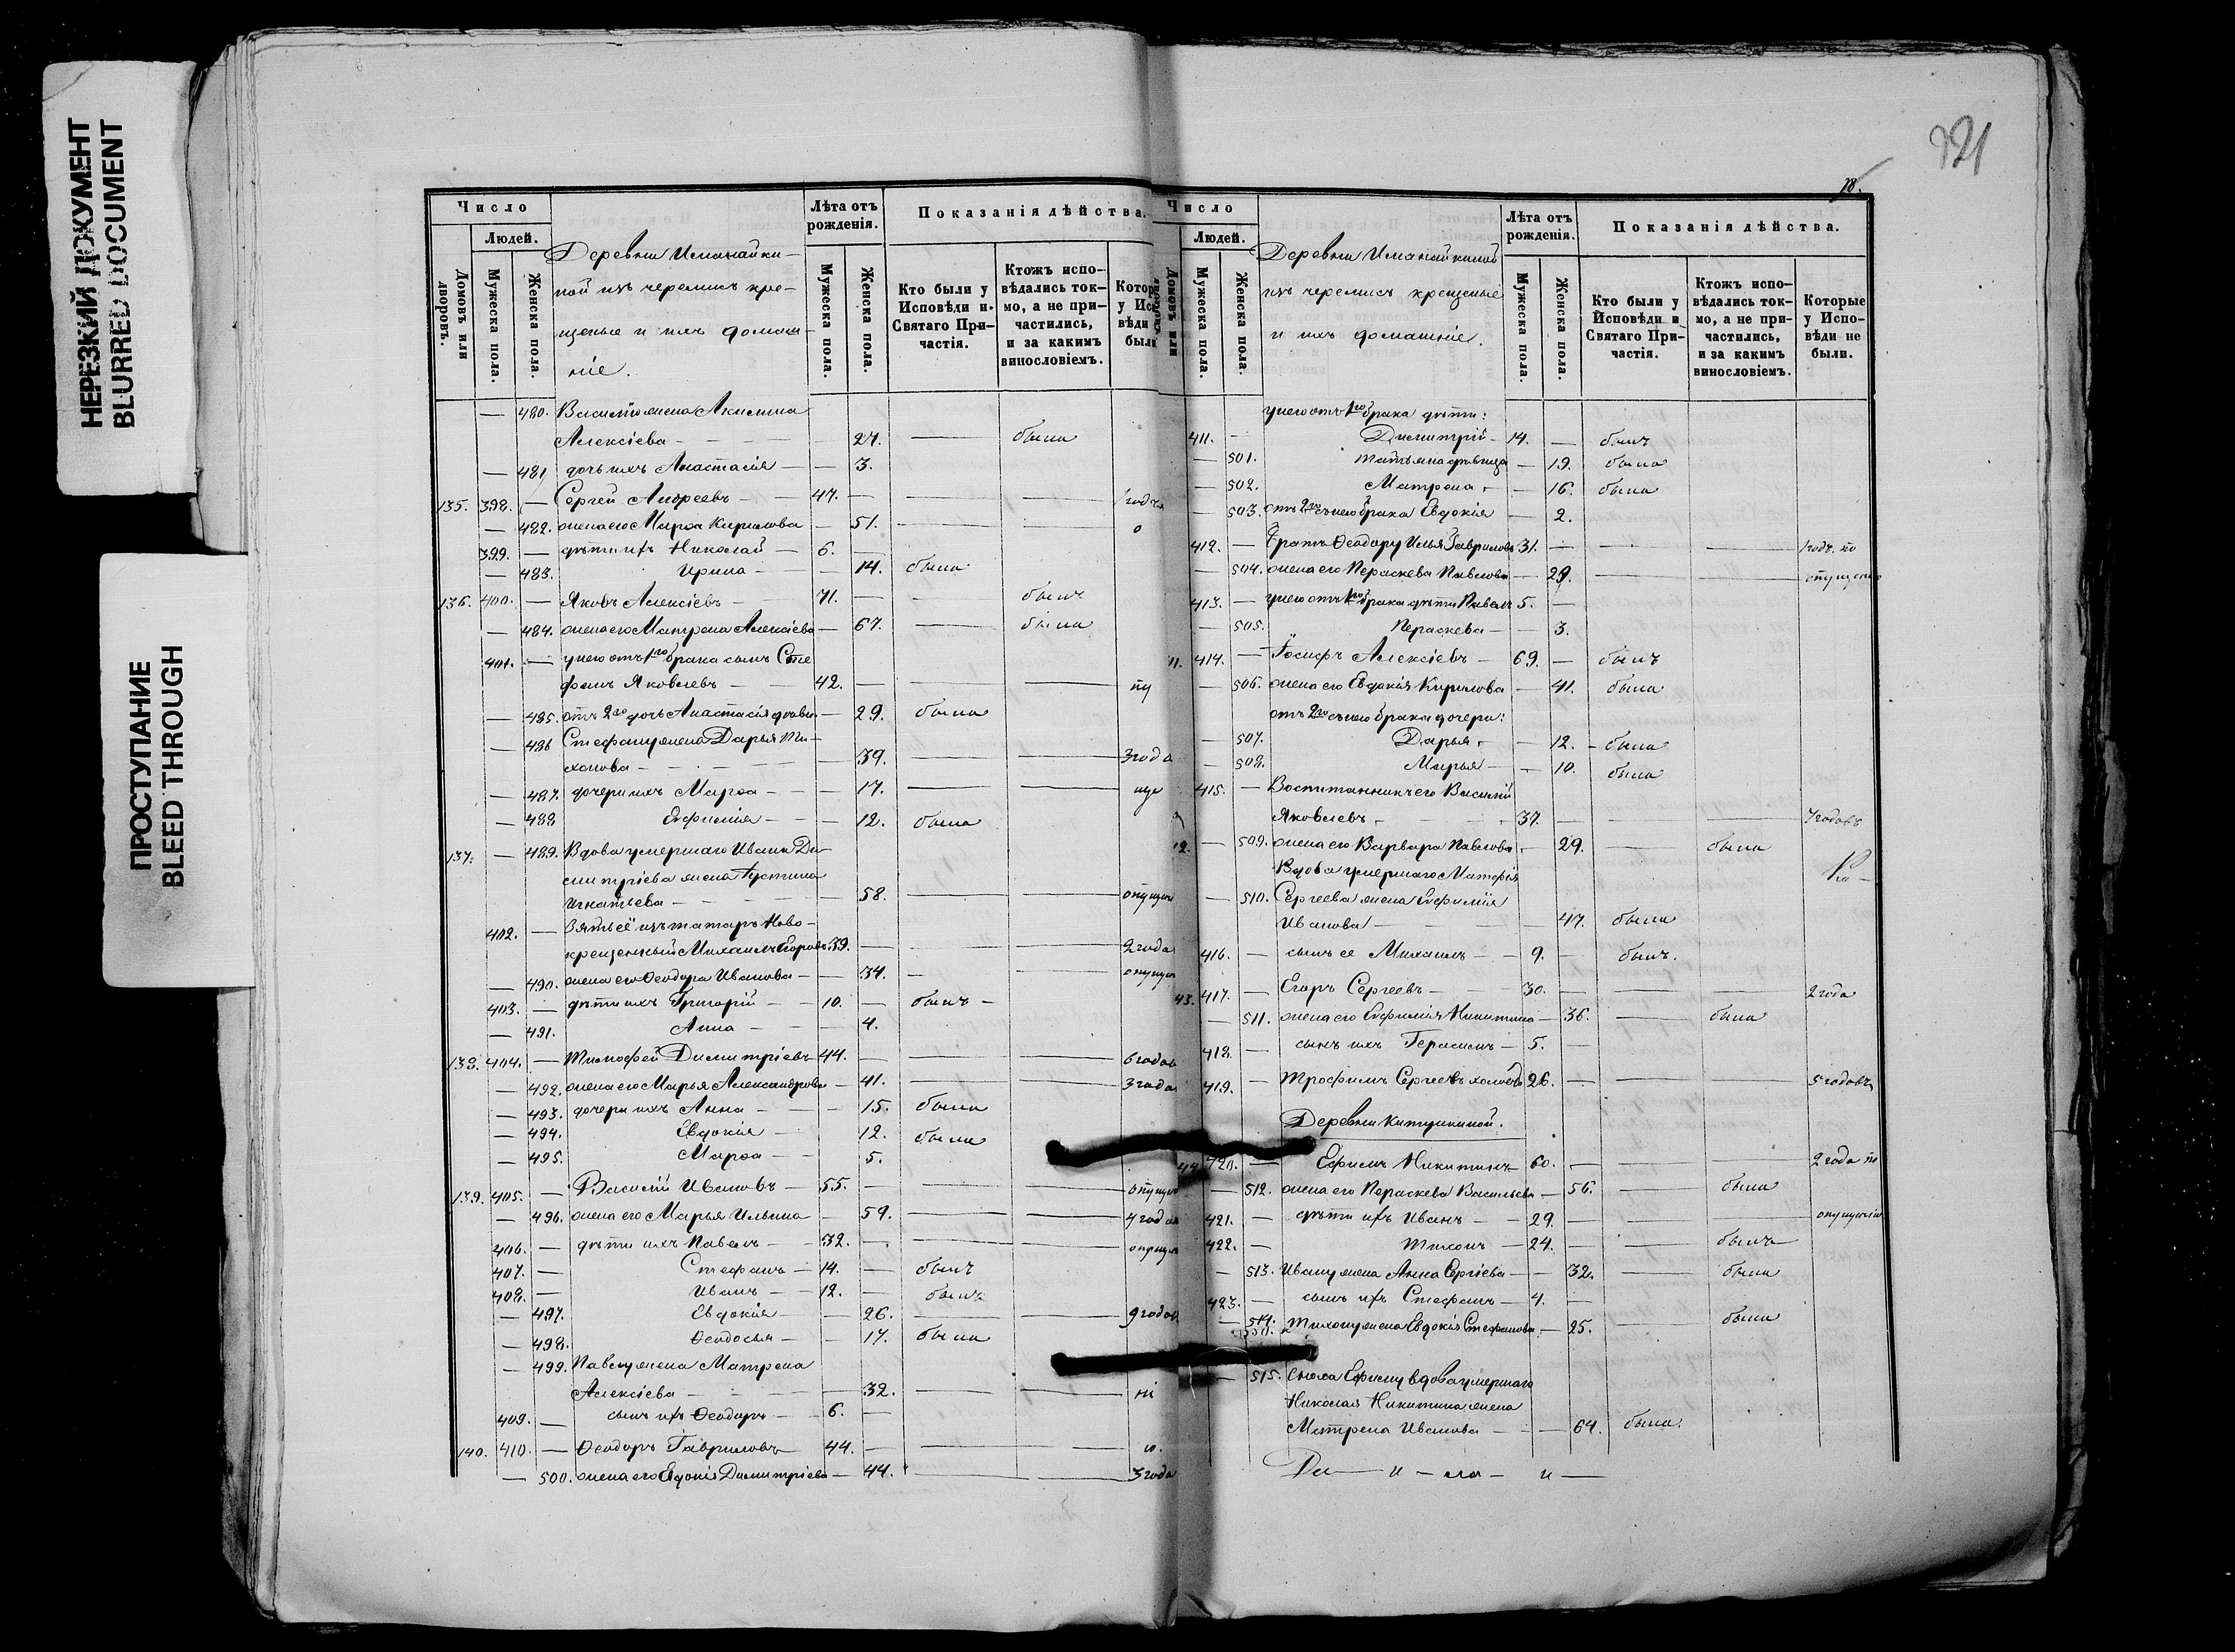 НЕРЕЗКИЙ ДОКУМЕНТ
BLURRED DOCUMENT
ПРОСТУПАНИЕ
BLEED THROUGH
Число
Людей.
Домовъ или дворовъ.
Мужеска пола.
Женска пола.
Деревни Иманайки-
ной изъ черемисъ кре-
щеные и ихъ домаш-
ніе.
Лѣта отъ рожденія.
Мужеска пола.
Женска пола.
Показанія дѣйства.
Кто были у Исповѣди и Святаго При-частія.
Ктожъ испо-вѣдались ток-мо, а не при-частились, и за какимъ винословіемъ.
— 480. Василію жена Акилина
Алексіева — 27. — была
— 481 дочь ихъ Анастасія — 3.
135. 398. — Сергей Андреевъ — 47. —
— 482. жена его Марѳа Кирилова — 51. —
399. — дѣти ихъ Николай — 6. —
— 483. Ирина — 14. была
136. 400. — Яковъ Алексіевъ — 71. — былъ
— 484. жена его Матрена Алексіева — 67. — была
401. — у него отъ 1го брака сынъ Сте
фанъ Яковлевъ — 42. —
— 485. отъ 2го дочь Анастасія — 29. была
— 486 Стефану жена Дарья Ти-
хонова — 39. — 3 года
— 487. дочери ихъ Марѳа — 17. —
— 488 Евфимія — 12. была
137. — 489. Вдова умершаго Ивана Ди-
митріева жена Іустина
Игнатьева — 58. —
402. — Зять её изъ татаръ Ново-
крещенный Михаилъ Егоровъ 39. — 2 года
— 490. жена его Ѳеодора Иванова — 34. —
403. — дѣти ихъ Григорій — 10. — былъ —
— 491. Анна — 4.
138. 404. — Тимофей Димитріевъ 44. — 6 годов
— 492. жена его Марья Александрова — 41. — 3 года
— 493. дочери ихъ Анна — 15. была
— 494. Евдокія — 12. была
— 495. Марѳа — 5.
139. 405. — Василій Ивановъ — 55. —
— 496. жена его Марья Ильина — 59. —
406. — дѣти ихъ Павелъ — 32. —
407. — Стефанъ — 14. — былъ
408. — Иванъ — 12. — былъ
— 497. Евдокія — 26. — 9 годов
— 498. Ѳеодосья — 17. была
— 499. Павлу жена Матрена
Алексіева — 32. —
409. — сынъ ихъ Ѳеодоръ — 6. —
140. 410. — Ѳеодоръ Гавриловъ — 44. —
— 500. жена его Евдокія Димитріева — 44. — 3 года
321
78.
Число
Людей.
Мужеска пола.
Женска пола.
Деревни Иманайкиной
изъ черемисъ крещеные
и ихъ домашніе.
Лѣта отъ рожденія.
Мужеска пола.
Женска пола.
Показанія дѣйства.
Кто были у Исповѣди и Святаго При-частія.
Ктожъ испо-вѣдались ток-мо, а не при-частились, и за какимъ винословіемъ.
Которые у Испо-вѣди не были.
у него отъ 1го брака дѣти:
411. — Димитрій — 14. — былъ
— 501. Татьяна дѣвица — 19. была
— 502. Матрена — 16. была
— 503. отъ 2го съ нею брака Евдокія — 2.
412. — Братъ Ѳеодору Илья Гавриловъ 31. — 1 годъ по
— 504. жена его Параскева Павлова — 29. — опущенію
413. — у него отъ 1го брака дѣти Павелъ 5. —
— 505. Параскева — 3.
414. — Іосифъ Алексіевъ — 69. — былъ
— 506. жена его Евдокія Кирилова — 41. была
отъ 2го съ нею брака дочери:
— 507. Дарья — 12. — была
— 508. Марья — 10. была
415. — Воспитанникъ его Василій
Яковлевъ — 37. — 7 годовъ
— 509. жена его Варвара Павлова — 29. — была
Вдова умершаго Матфія
— 510. Сергеева жена Евфимія
Иванова — 47. была
416. — сынъ ее Михаилъ — 9. — былъ.
43. 417. — Егоръ Сергеевъ — 30. — 2 года
— 511. жена его Евфимія Никитина — 36. — была
418. — сынъ ихъ Герасимъ — 5. —
419. — Трофимъ Сергеевъ холостъ 26. — 5 годовъ
Деревни Китушкиной.
44 420. — Ефимъ Никитинъ — 60. — 2 года по
— 512. жена его Параскева Васильева — 56. — была
421. — дѣти ихъ Иванъ — 29. — опущенію
422. — Тихонъ — 24. — былъ
— 513. Ивану жена Анна Сергіева — 32. — была
423. — сынъ ихъ Стефанъ — 4. —
— 514. Тихону жена Евдокія Стефанова — 25. — была
— 515. Сноха Ефиму вдова умершаго
Николая Никитина жена
Матрена Иванова — 64. была.